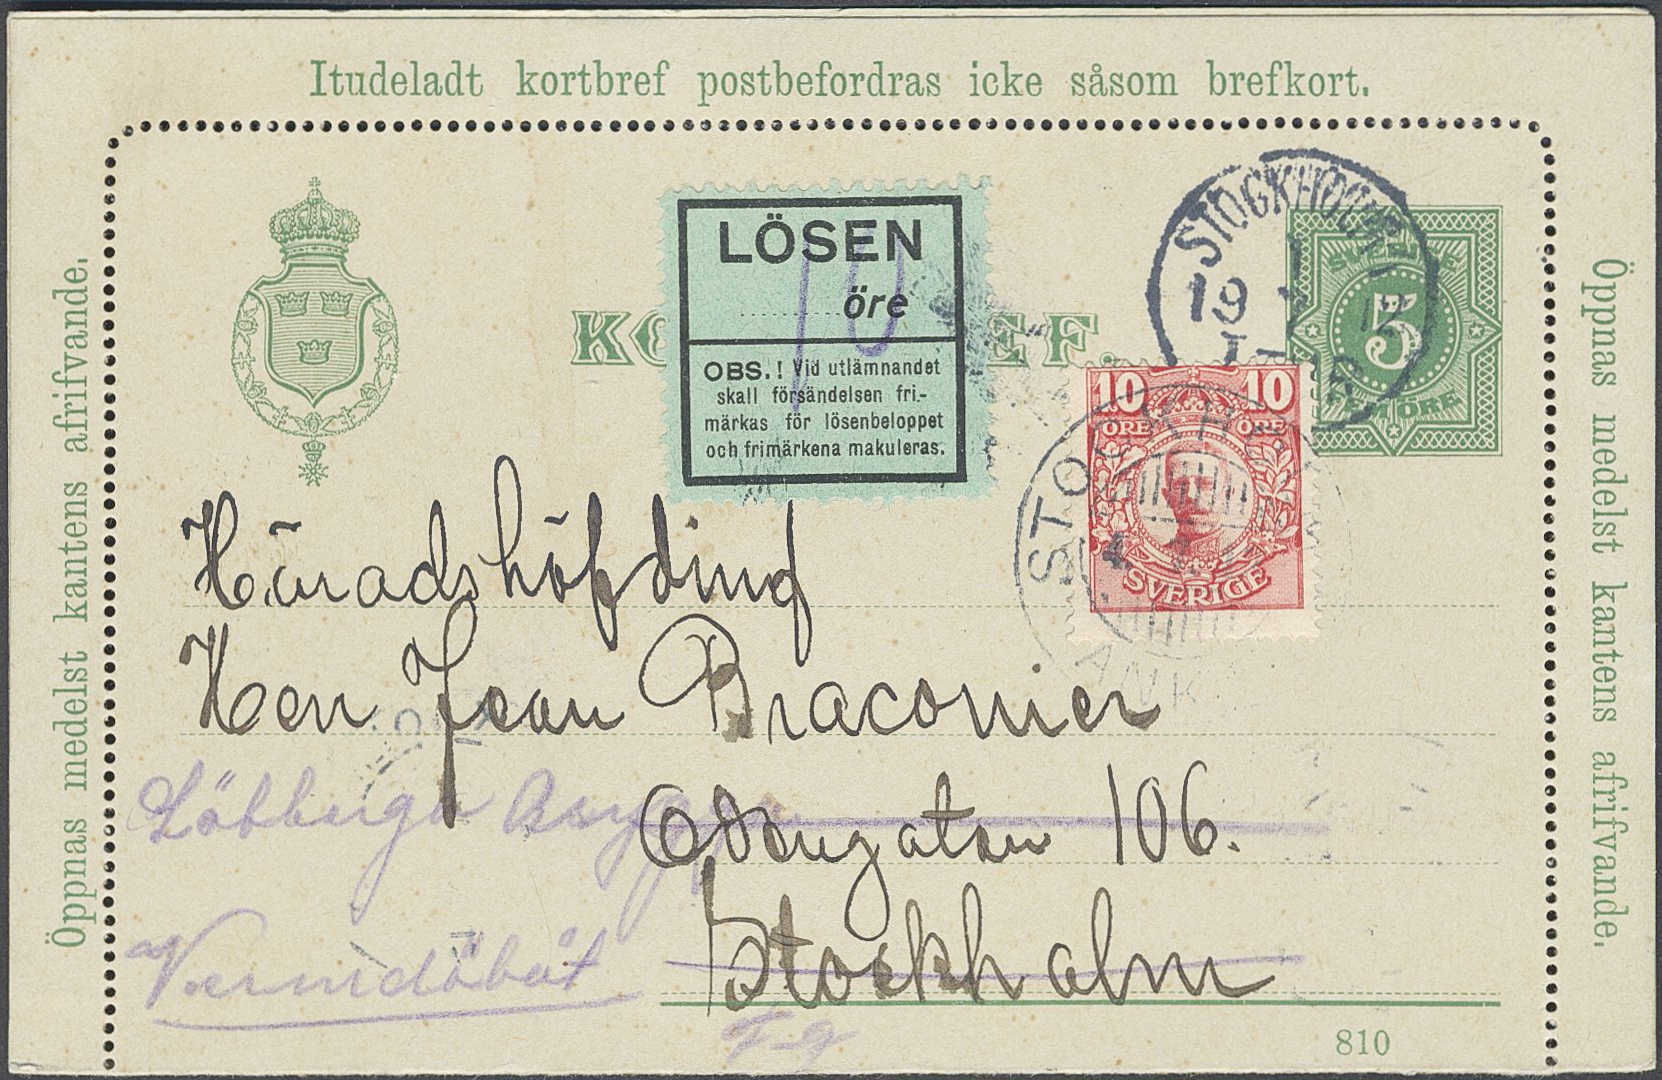 Itudeladt kortbref postbefordras icke såsom brefkort.
Öppnas medelst kantens afrifvande.
Öppnas medelst kantens afrifvande.
LÖSEN
10
öre
OBS.! Vid utlämnandet
skall försändelsen fri-
märkas för lösenbeloppet
och frimärkena makuleras.
STOCKHOLM
1
19 7 12
SVERIGE
5
FEM ÖRE
10 10
ÖRE ÖRE
SVERIGE
STOCKHOLM
ANK
Häradshöfding
Herr Jean Braconier
Odengatan 106.
Stockholm
Värmdöbåt
810